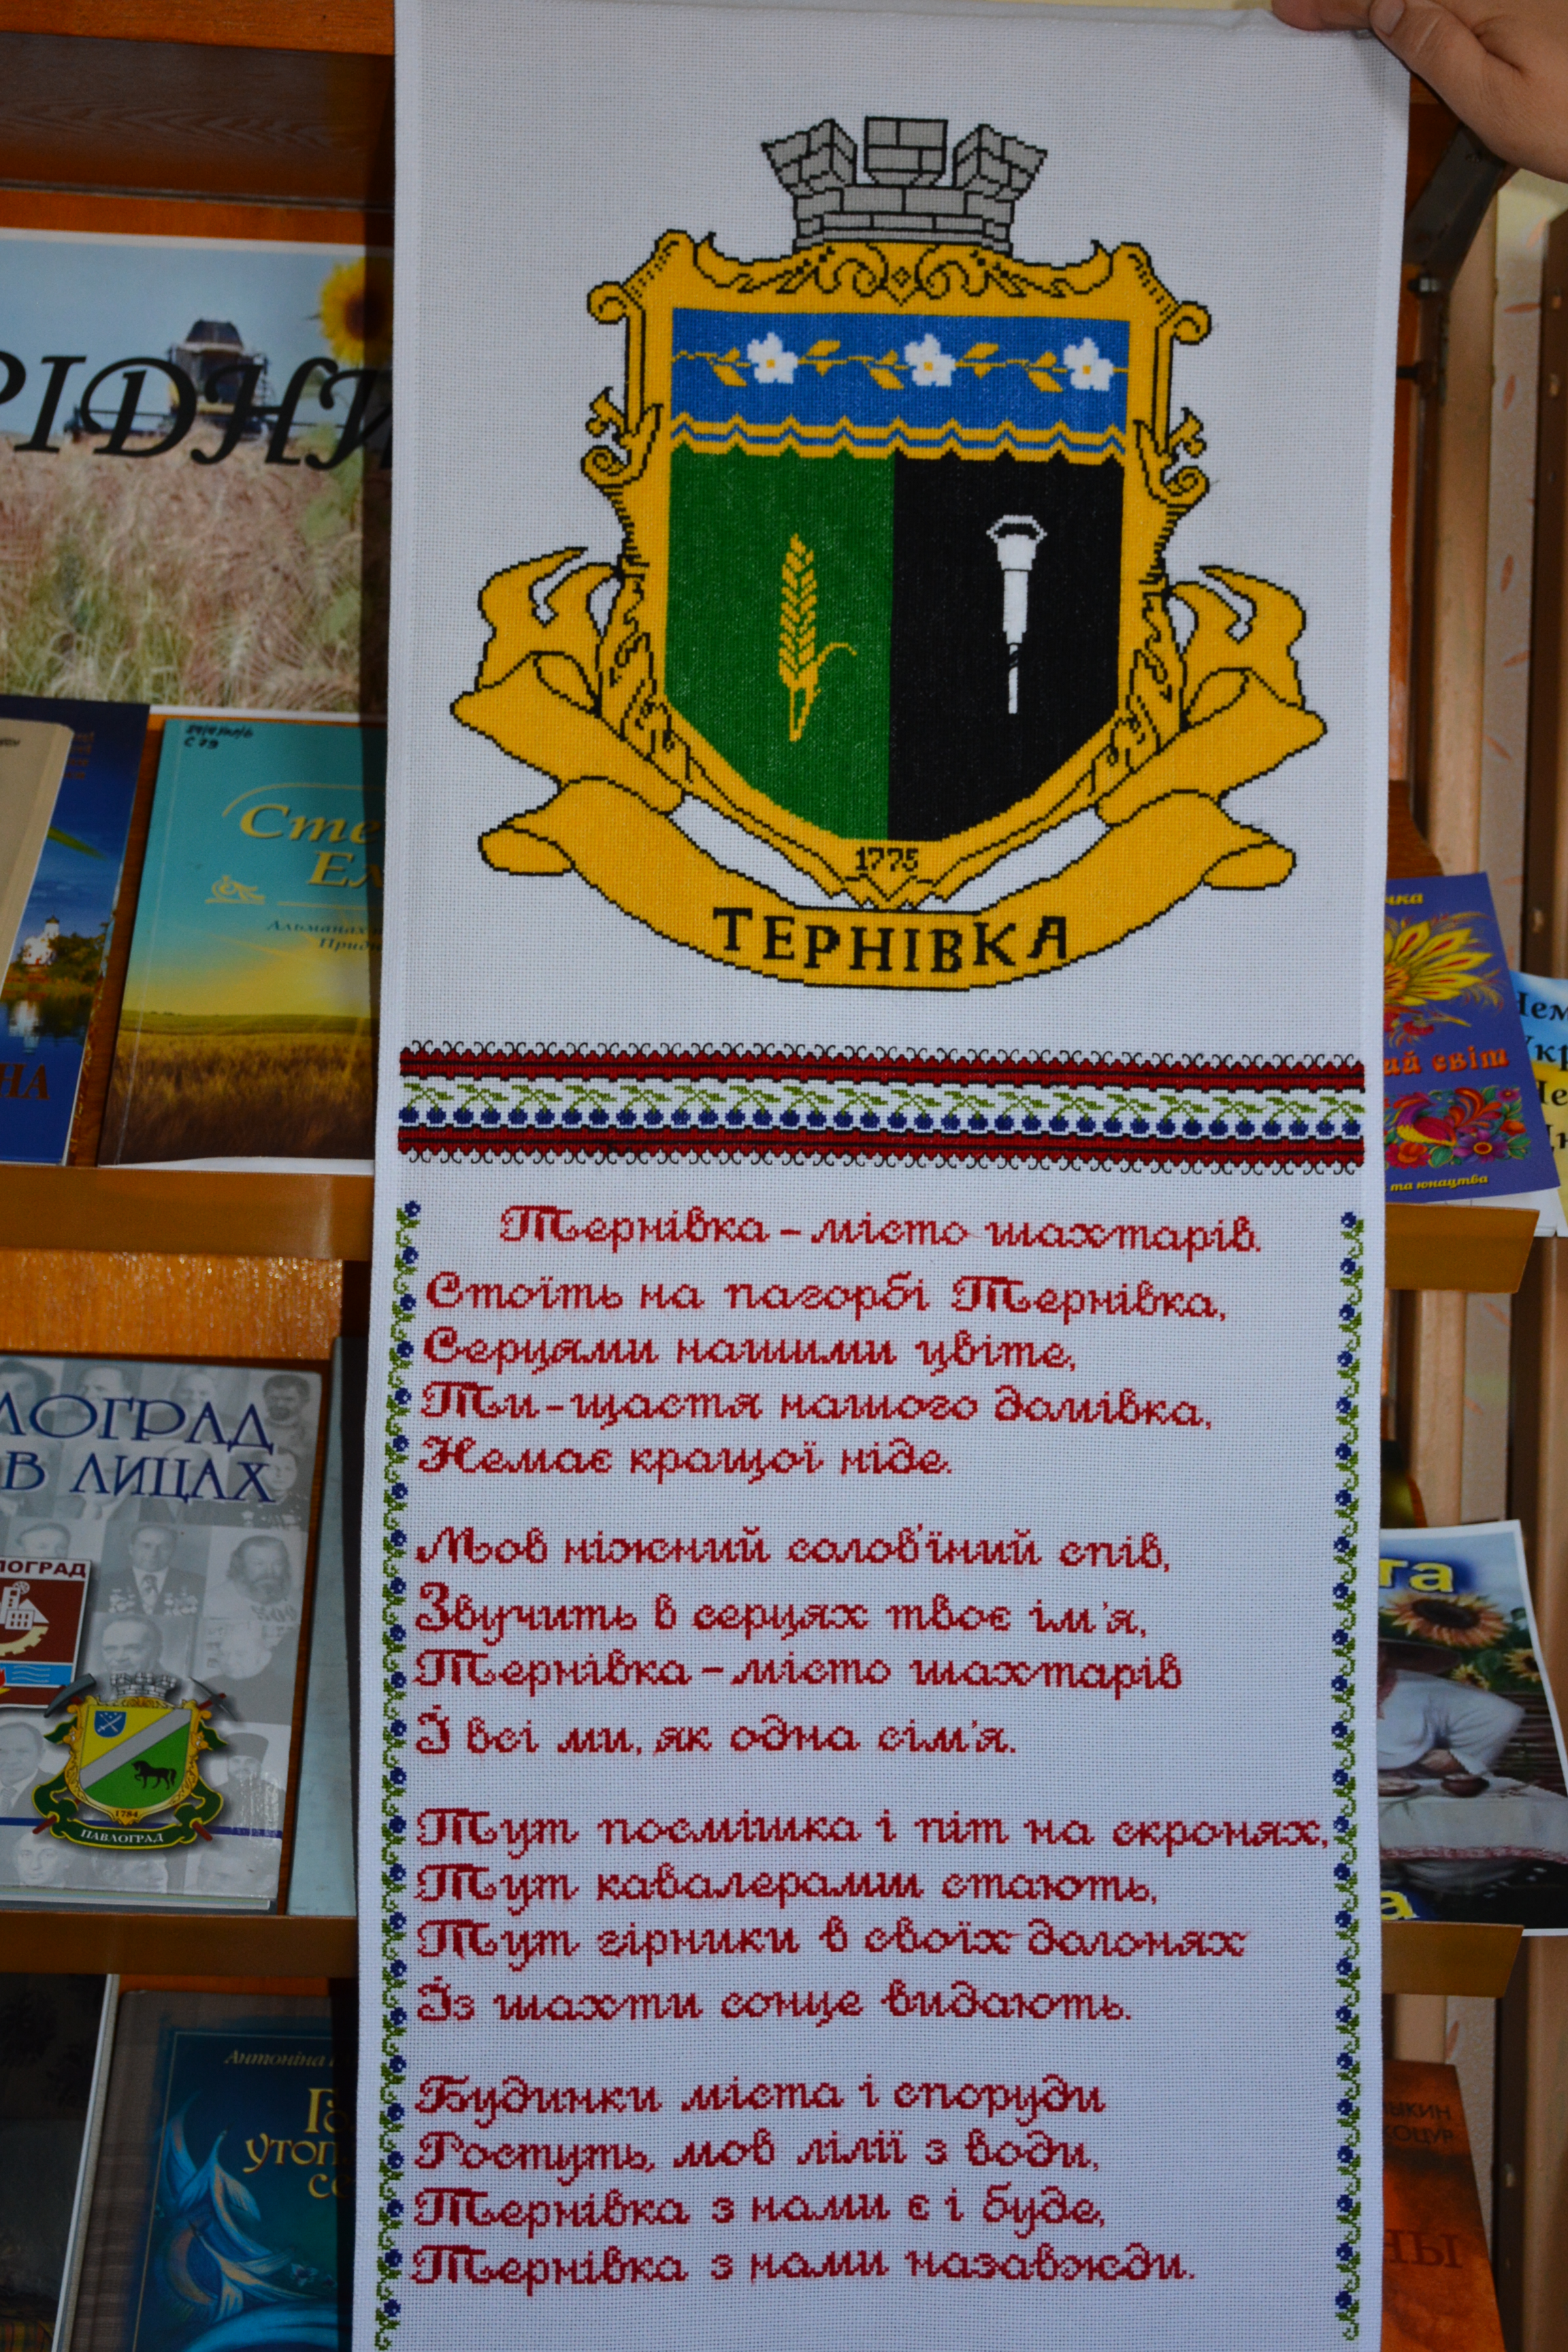 1775
ТЕРНІВКА
Тернівка – місто шахтарів.
Стоїть на пагорбі Тернівка,
Серцями нашими цвіте,
Ти – щастя нашого домівка,
Немає кращої ніде.
Мов ніжний солов'їний спів,
Звучить в серцях твоє ім'я,
Тернівка – місто шахтарів
Й всі ми, як одна сім'я.
Тут посмішка і піт на скронях,
Тут кавалерами стають,
Тут гірники в своїх долонях
Із шахти сонце видають.
Будинки міста і споруди
Ростуть, мов лілії з води,
Тернівка з нами є і буде,
Тернівка з нами назавжди.
РІДНИ
Сте
Ел
Альманах
Прид
НА
ЛОГРАД
В ЛИЦАХ
ЛОГРАД
1784
ПАВЛОГРАД
Антоніна
УТОП
чка
ий світ
та юнацтва
Чем
Укр
та
а
ЗЫКИН
КОЦУР
НЫ